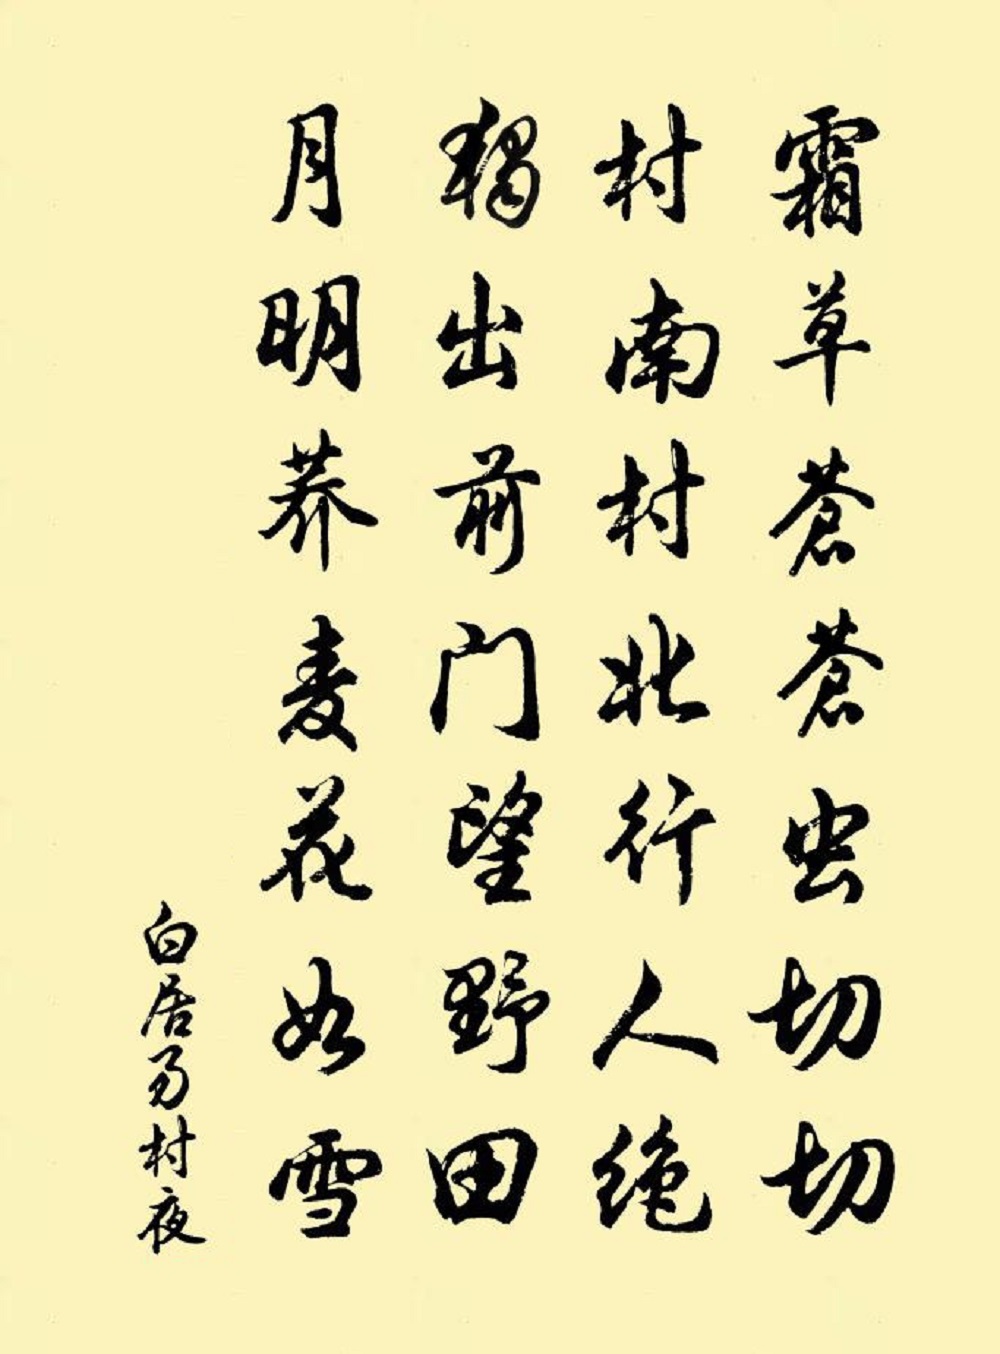 霜草蒼蒼虫切切
村南村北行人绝
獨出前门望野田
月明荞麦花如雪
白居易村夜